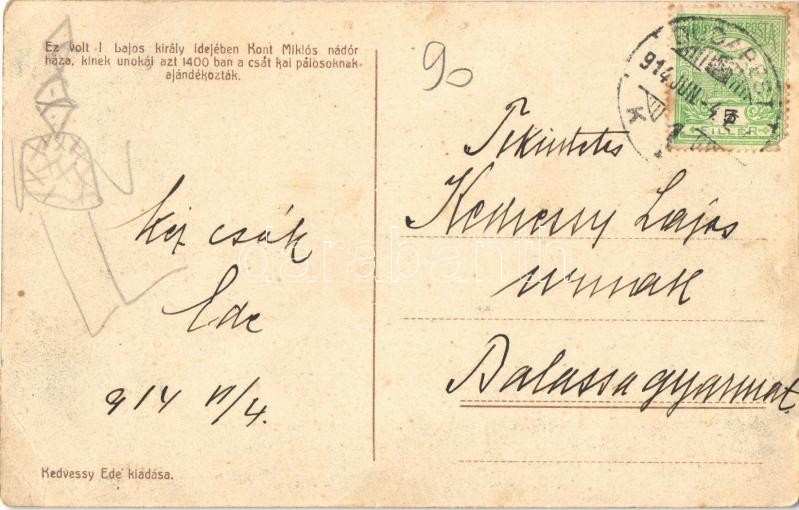 Ez volt I Lajos király idejében Kont Miklós nádor
háza, kinek unokái azt 1400 ban a csát kai pálosoknak
ajándékozták.
90
BUDAPEST
914 JUN -4
FILLÉR
Tekintetes
Kedvessy Lajos
urnak
Balassagyarmat
Kéz csók
Ede
914 VI/4.
Kedvessy Ede kiadása.
darabanth